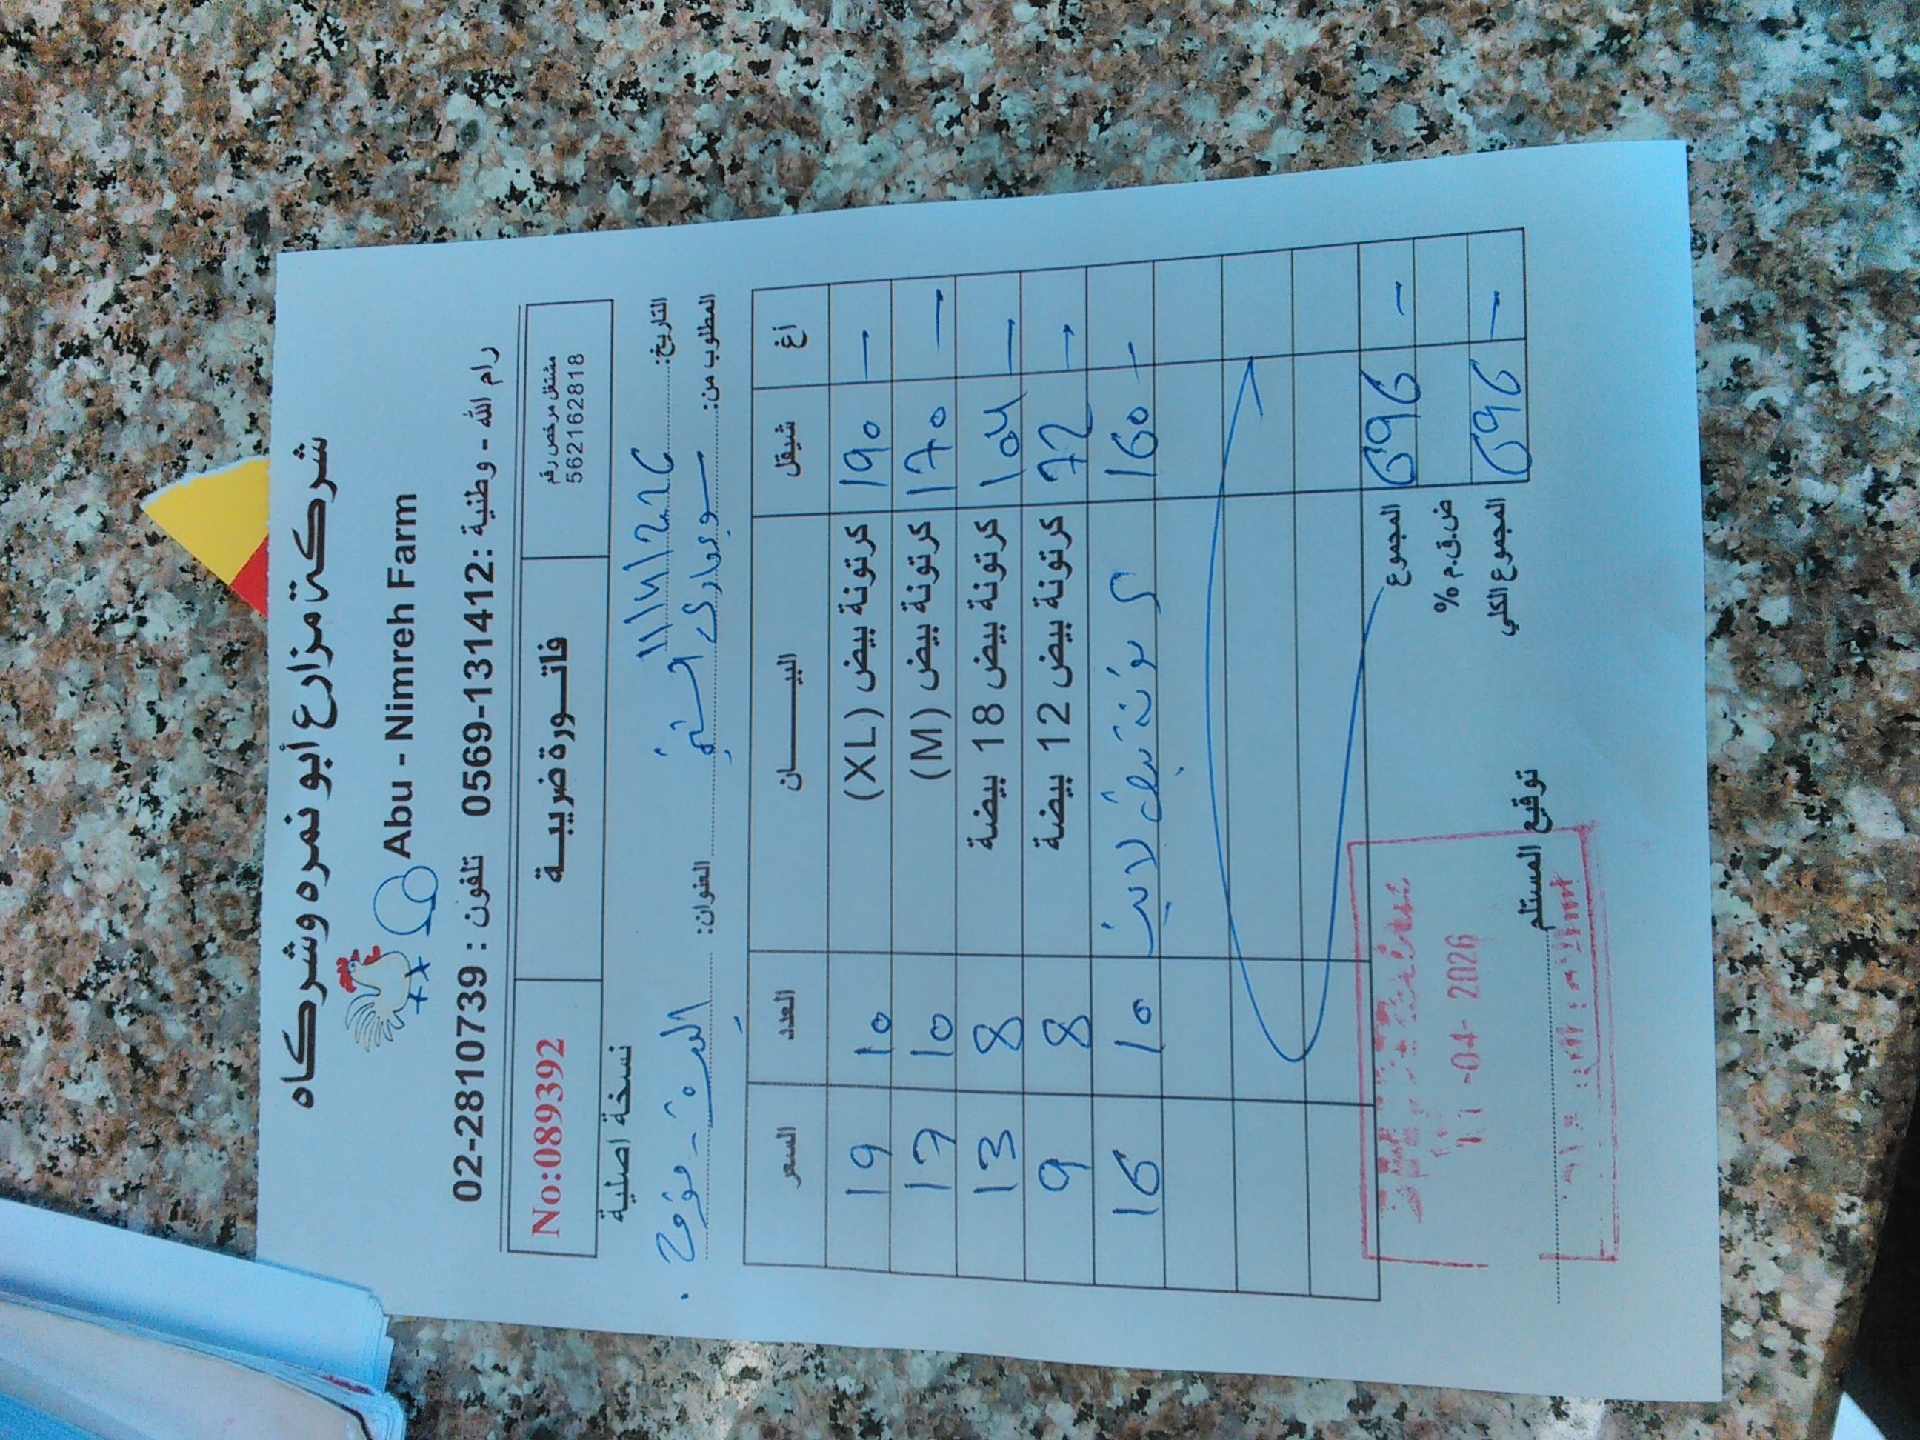 شركة مزارع أبو نمره وشركاه
Abu - Nimreh Farm
رام الله - وطنية : 0569-131412 تلفون : 02-2810739
مشتغل مرخص رقم
562162818
فاتورة ضريبية
No:089392
نسخة اصلية
التاريخ: 11/4/2026
المطلوب من: سوبرماركت العنوان: البيرة -
أغ شيقل البيان العدد السعر
— 190 كرتونة بيض (XL) 10 19
— 170 كرتونة بيض (M) 10 17
— 104 كرتونة بيض 18 بيضة 8 13
— 72 كرتونة بيض 12 بيضة 8 9
— 160 كرتونة بيض لايت 10 16
— 696 المجموع
ض.ق.م %
— 696 المجموع الكلي
توقيع المستلم
11 -04- 2026